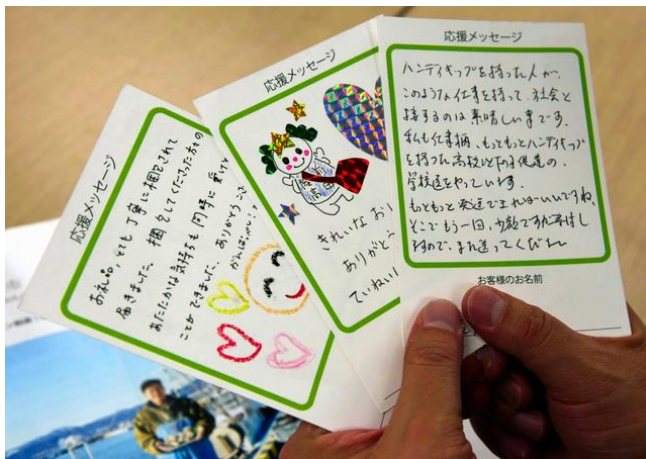 応援メッセージ
お礼品、とても丁寧に梱包されて
届きました。梱包をしてくださった方々の
あたたかな気持ちも同時に
ことができました。ありがとうござ
応援メッセージ
きれいな
ありがとう
ていねい
応援メッセージ
ハンディキャップを持った人が、
このような仕事を持って、社会と
接するのは素晴しい事です。
私も仕事柄、もっともっとハンディキャップ
を持った高校
学校
もっともっと発送できればいいですね。
そこでもう一回、少額ですが寄付し
ますので、また送ってください
お客様のお名前